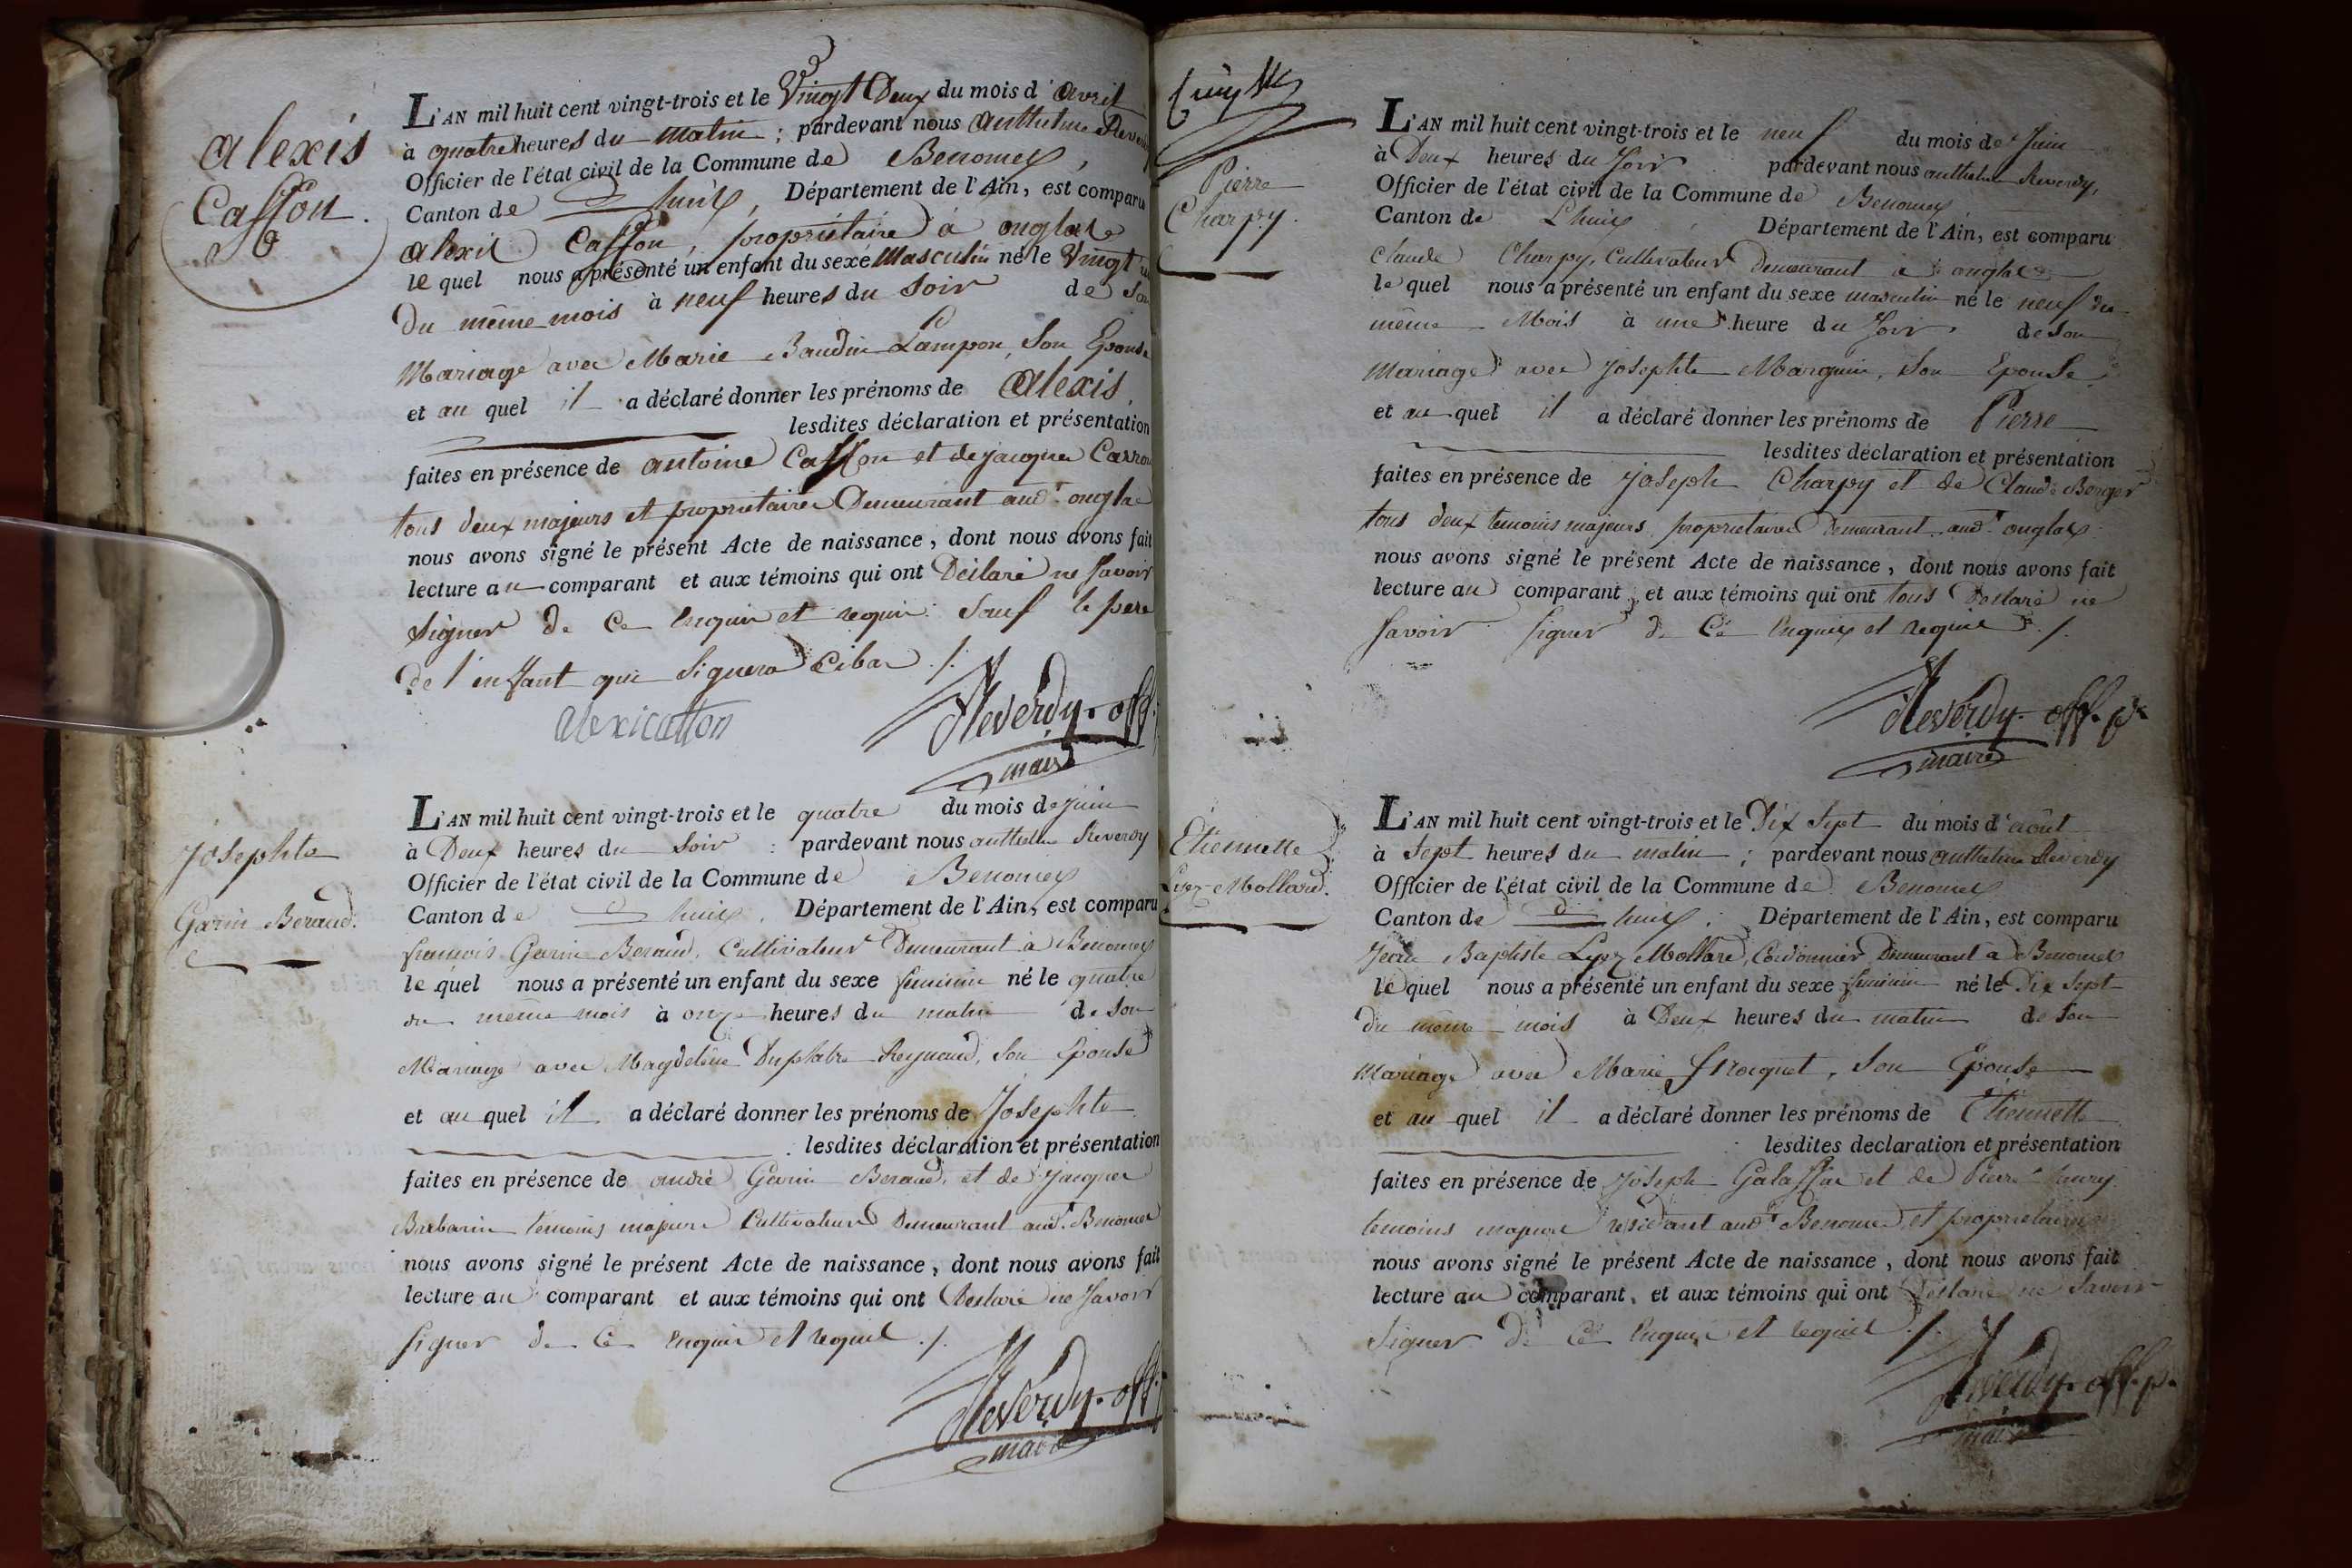 alexis
Caffon.
L'AN mil huit cent vingt-trois et le Vingt Deux du mois d'avril
à quatre heures du matin ; pardevant nous authelme
Officier de l'état civil de la Commune de Benonces,
Canton de Lhuis, Département de l'Ain, est comparu
alexis Caffon, propriétaire à onglas
le quel nous a présenté un enfant du sexe masculin né le Vingt
Du même mois à neuf heures du Soir de Son
Mariage avec Marie Baudin Lampon, Son Epouse
et au quel il a déclaré donner les prénoms de alexis,
lesdites déclaration et présentation
faites en présence de antoine Caffon et de jacques
tous deux majeurs et proprietaires Demeurant aud.t onglas
nous avons signé le présent Acte de naissance, dont nous avons fait
lecture au comparant et aux témoins qui ont Déclaré ne Savoir
signer de Ce Enquis et requis Sauf le pere
de l'enfant qui Signera
alexicaffon
Reverdy. off.
maire
Josephte
Garin Beraud.
L'AN mil huit cent vingt-trois et le quatre du mois de juin
à Deux heures du Soir : pardevant nous authelme Reverdy
Officier de l'état civil de la Commune de Benonces
Canton de Lhuis, Département de l'Ain, est comparu
francois Garin Beraud, Cultivateur Demeurant à Benonces
le quel nous a présenté un enfant du sexe feminin né le quatre
du même mois à onze heures du matin de Son
Mariage avec Magdeleine Duplatre Reynaud, Son Epouse
et au quel il a déclaré donner les prénoms de Josephte
lesdites déclaration et présentation
faites en présence de andré Garin Beraud, et de Jacques
temoins majeurs Cultivateurs Demeurant aud.t Benonces
nous avons signé le présent Acte de naissance, dont nous avons fait
lecture au comparant et aux témoins qui ont Déclaré ne Savoir
Signer de Ce Enquis et requis ./.
Reverdy. off.
maire
Pierre
Charpy.
L'AN mil huit cent vingt-trois et le neuf du mois de Juin
à Deux heures du Soir pardevant nous authelme Reverdy,
Officier de l'état civil de la Commune de Benonces
Canton de Lhuis, Département de l'Ain, est comparu
Claude Charpy, Cultivateur Demeurant à onglas
le quel nous a présenté un enfant du sexe masculin né le neuf du
même Mois à une heure du Soir. de Son
Mariage avec Josephte Marguin, Son Epouse,
et au quel il a déclaré donner les prénoms de Pierre
lesdites déclaration et présentation
faites en présence de Joseph Charpy et de Claude Berger
tous deux temoins majeurs proprietaires Demeurant aud.t onglas
nous avons signé le présent Acte de naissance, dont nous avons fait
lecture au comparant, et aux témoins qui ont tous Déclaré ne
Savoir Signer de Ce Enquis et requis ./.
Reverdy. off. p.
maire
Etiennette
Lyez-Mollard.
L'AN mil huit cent vingt-trois et le Dix Sept du mois d'août
à Sept heures du matin ; pardevant nous authelme Reverdy
Officier de l'état civil de la Commune de Benonces
Canton de Lhuis, Département de l'Ain, est comparu
Jean Baptiste Lyez Mollard, Cordonnier Demeurant a Benonces
le quel nous a présenté un enfant du sexe feminin né le Dix Sept
du même mois à Deux heures du matin de Son
Mariage avec Marie Troquet, Son Epouse
et au quel il a déclaré donner les prénoms de Etiennette
lesdites declaration et présentation
faites en présence de Joseph Galaffin et de Pierre
temoins majeurs residant aud.t Benonces et proprietaires
nous avons signé le présent Acte de naissance, dont nous avons fait
lecture au comparant, et aux témoins qui ont Déclaré ne Savoir
Signer De Ce Enquis et requis ./.
Reverdy. off. p.
maire